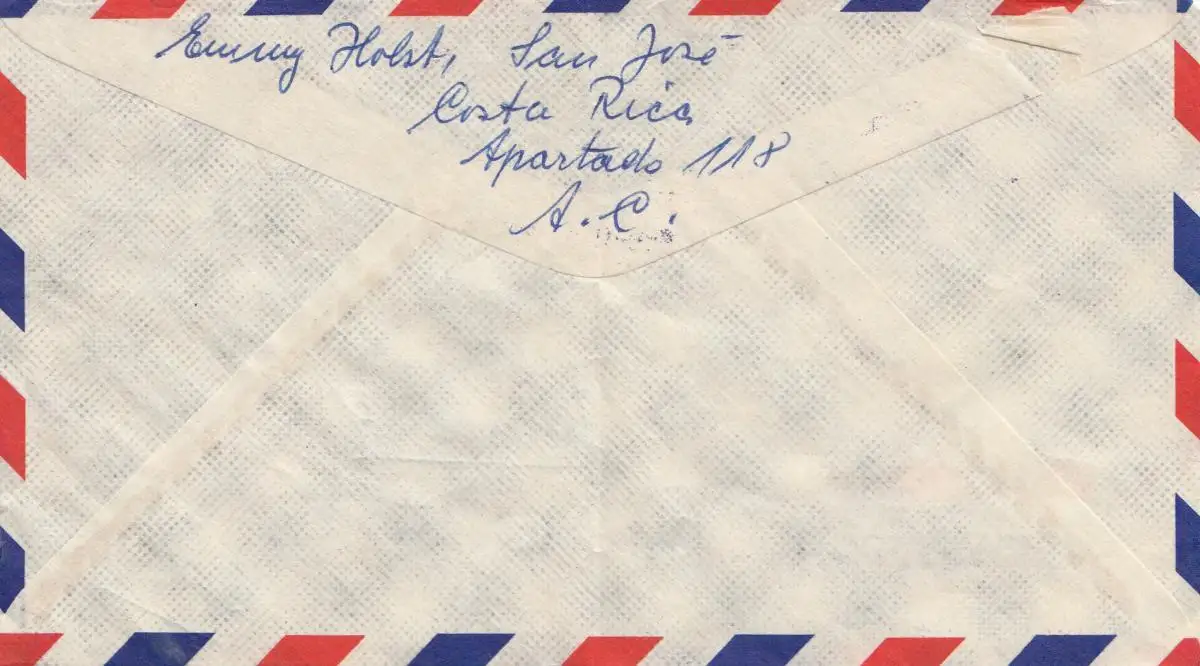 Emmy Holst, San José
Costa Rica
Apartado 118
A.C.